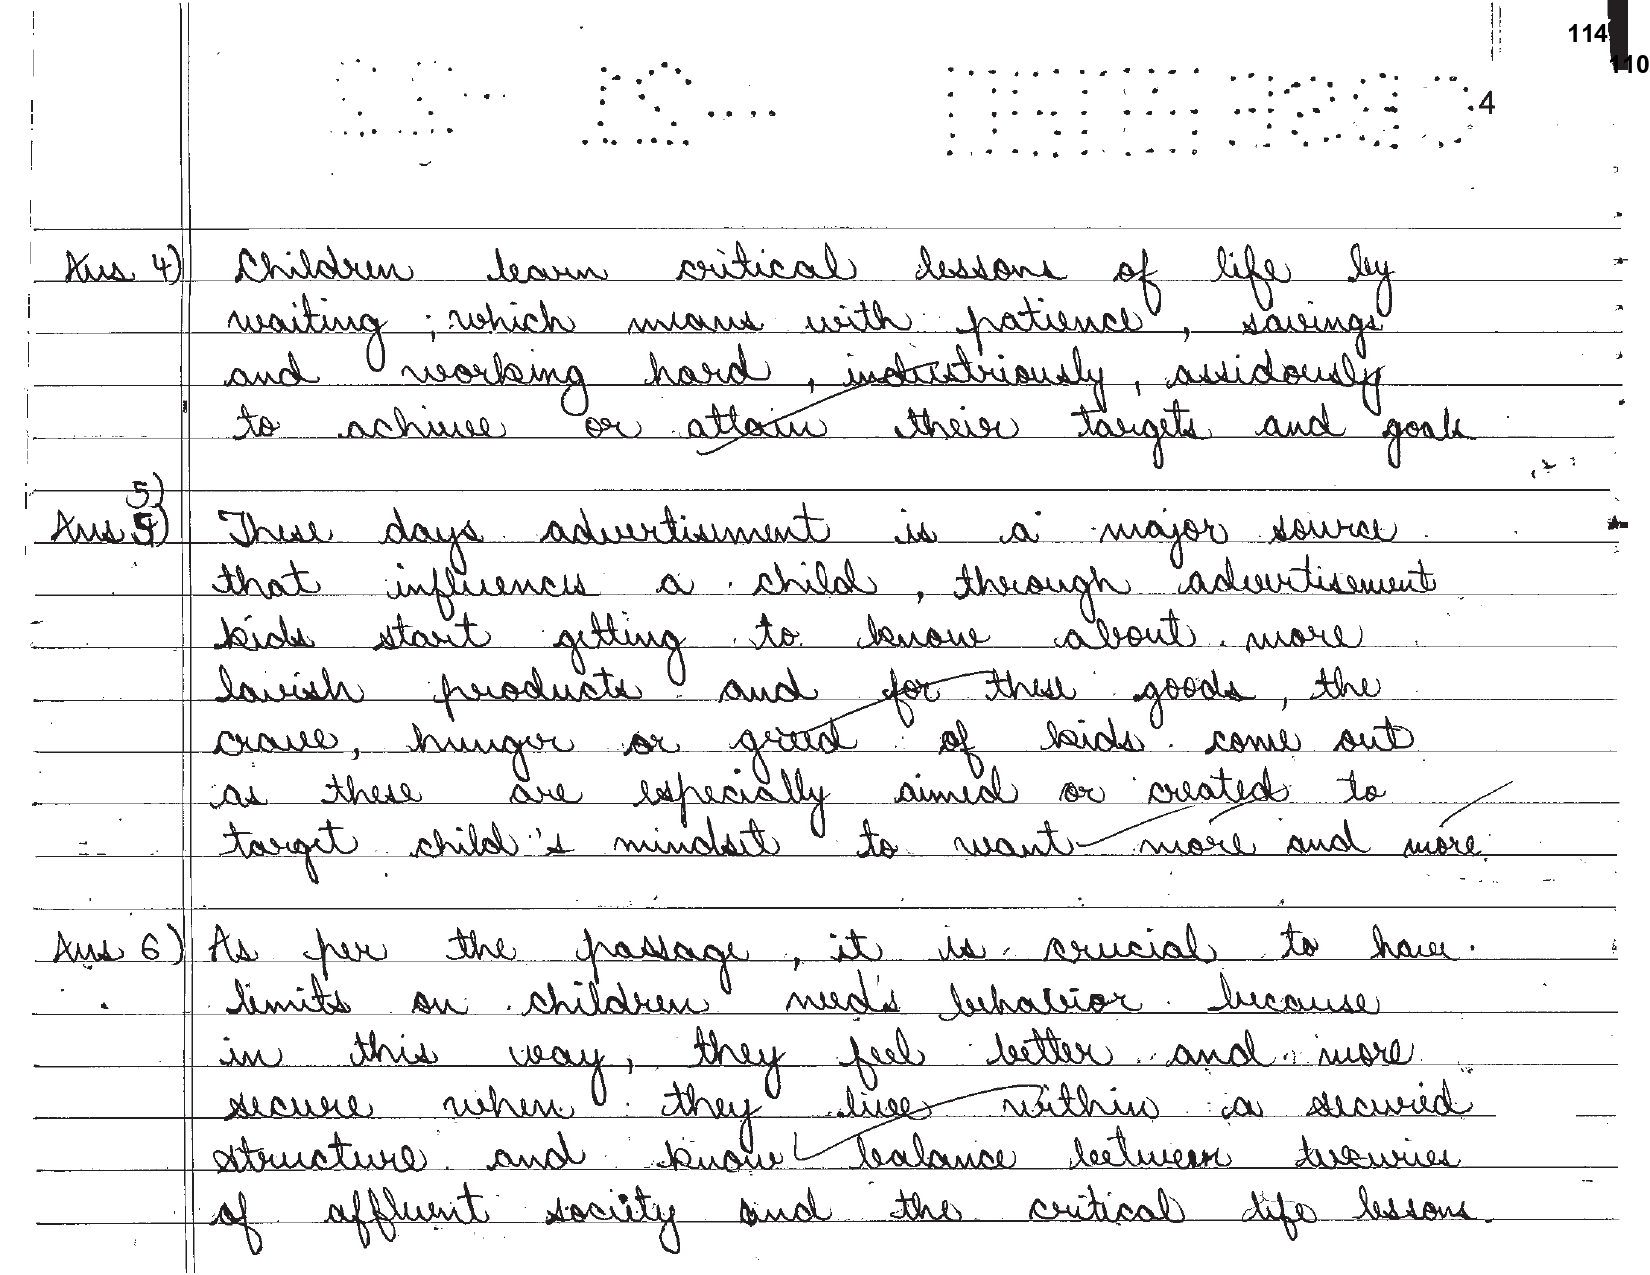 114
110
4
Ans 4) Children learn critical lessons of life by
waiting ; which means with patience , savings
and working hard , industriously , assidously
to achieve or attain their targets and goals
5)
Ans 5) These days advertisement is a major source
that influences a child , through advertisement
kids start getting to know about more
lavish products and for these goods , the
crave , hunger or greed of kids come out
as these are especially aimed or created to
target child's mindset to want more and more.
Ans 6) As per the passage , it is crucial to have
limits on children need's behavior because
in this way , they feel better and more
secure when they live within a secured
structure and know balance between luxuries
of affluent society and the critical life lessons.